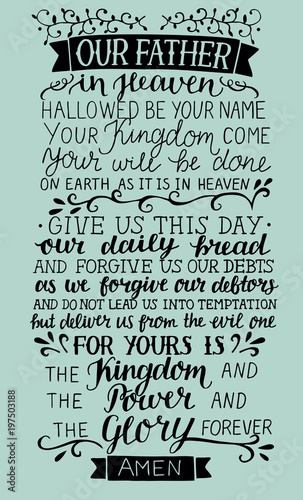 OUR FATHER
in Heaven
HALLOWED BE YOUR NAME
Your Kingdom COME
Your will be done
ON EARTH AS IT IS IN HEAVEN
GIVE US THIS DAY
our daily bread
AND FORGIVE US OUR DEBTS
as we forgive our debtors
AND DO NOT LEAD US INTO TEMPTATION
but deliver us from the evil one
FOR YOURS IS
THE Kingdom AND
THE Power AND
THE Glory FOREVER
AMEN
Adobe Stock | #197503188